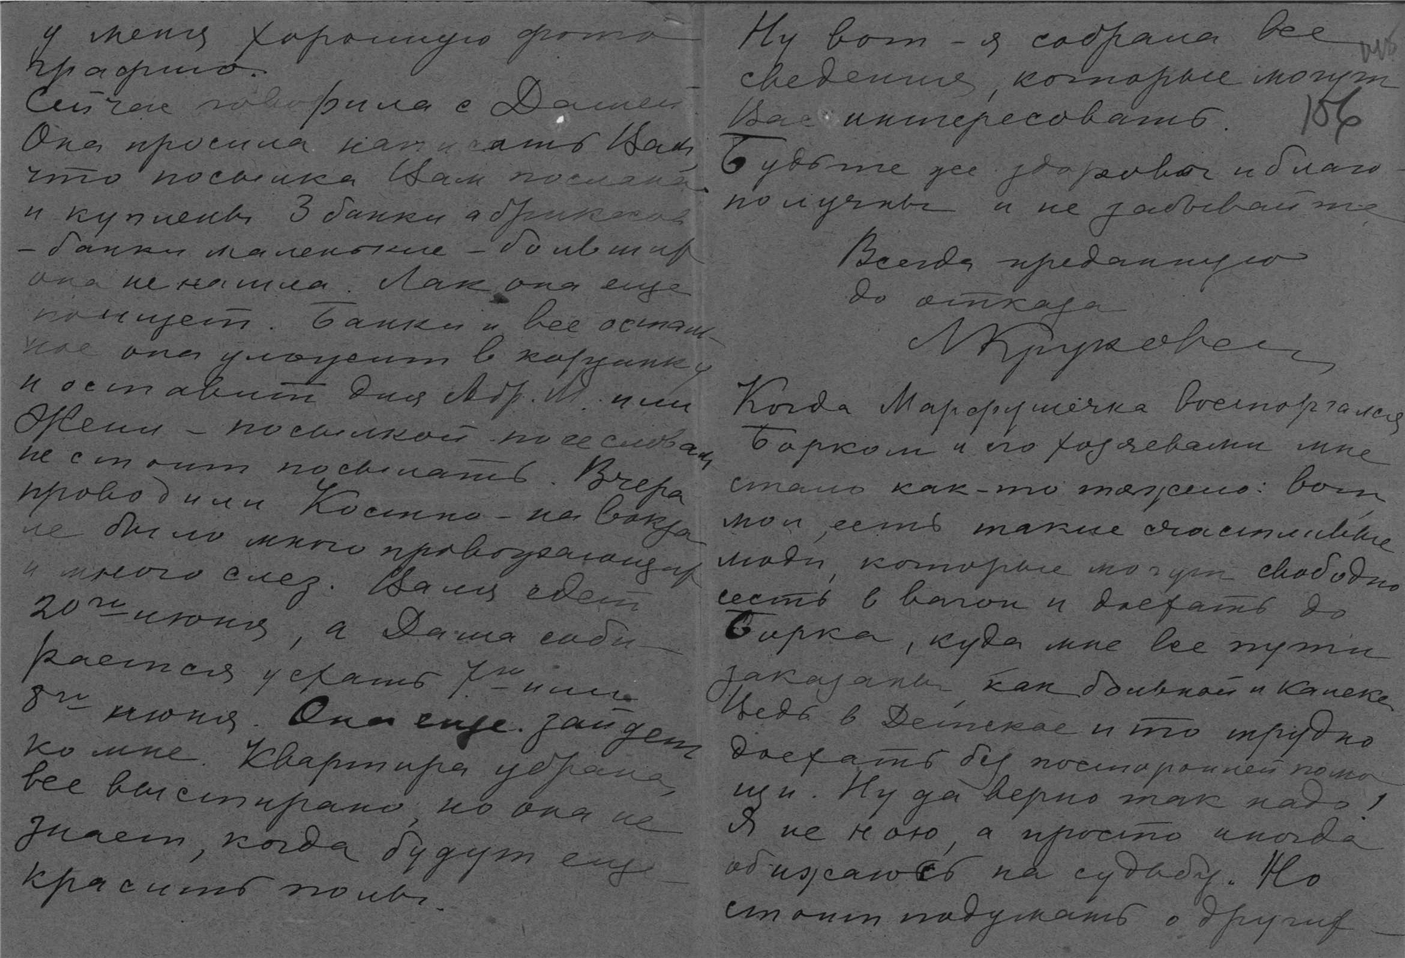 у меня хорошую фото
графию.
Сейчас говорила с Дашей
Она просила написать Вам,
что посылка Вам послана
и куплены 3 банки абрикосов
– банки маленькие – больших
она не нашла. Лак она еще
поищет. Банки и все осталь-
ное она уложит в корзинку
и оставит для Абр. М. или
Жени – посылкой по ее словам
не стоит посылать. Вчера
проводили Костю – на вокза
ле было много провожающих
и много слез. Валя едет
20го июня, а Даша соби-
рается уехать 7го или
8го июня. Она еще зайдет
ко мне. Квартира убрана,
все выстирано, но она не
знает, когда будут еще
красить полы.
Ну вот – я собрала все
сведения, которые могут
Вас интересовать.
156
Будьте же здоровы и благо-
получны и не забывайте
Всегда преданную
до отказа
МКруковск
Когда Марфушечка восторгалася
Борком и его хозяевами мне
стало как-то тяжело: вот
мол, есть такие счастливые
люди, которые могут свободно
сесть в вагон и доехать до
Борка, куда мне все пути
заказаны, как больной и калеке
Ведь в Детское и то трудно
доехать без посторонней помо
щи. Ну да верно так надо!
Я не ною, а просто иногда
обижаюсь на судьбу. Но
стоит подумать о других –